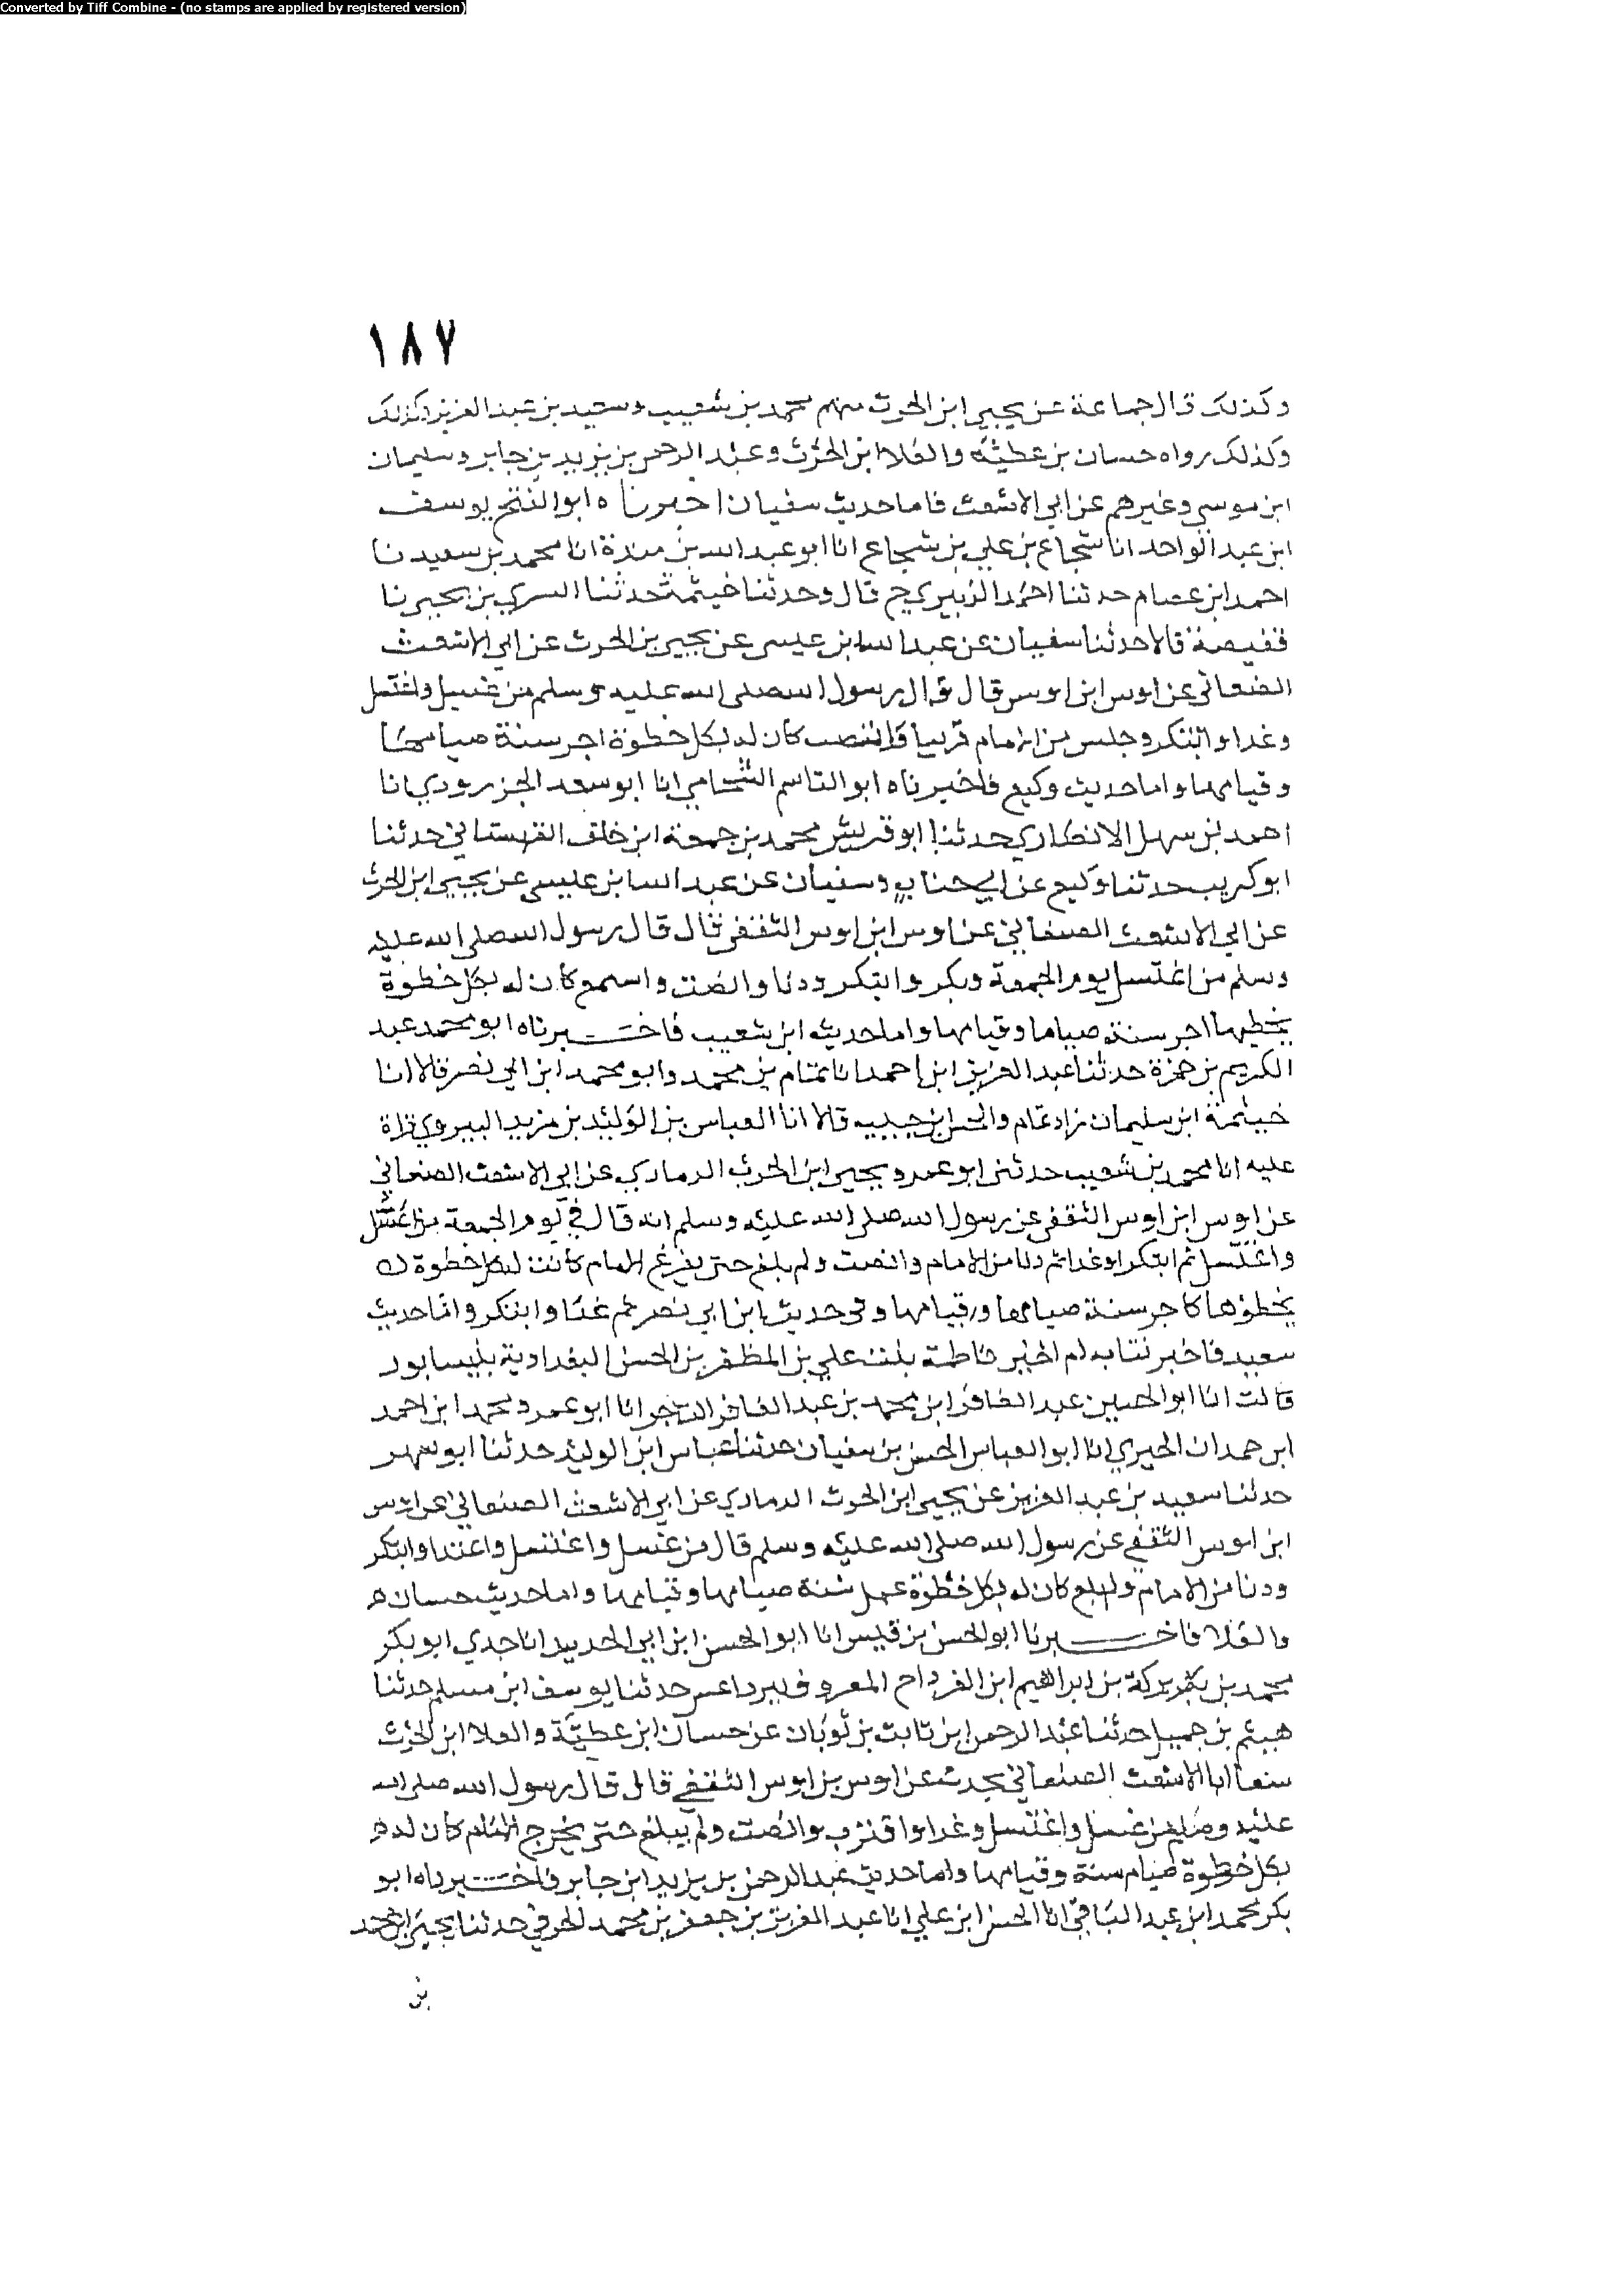 Converted by Tiff Combine - (no stamps are applied by registered version)
١٨٧
وكذلك قال جماعة عن يحيى ابن الحرث منهم محمد بن شعيب وسعيد بن عبد العزيز وكذلك
وكذلك رواه حسان بن عطية والعلاا ابن الحرث وعبد الرحمن بن يزيد بن جابر وسليمان
ابن موسى وغيرهم عن ابي الاشعث فاما حديث سفيان اخبرنا ه ابو الفتح يوسف
ابن عبد الواحد انا شجاع بن علي بن شجاع انا ابو عبد الله بن مندة انا محمد بن سعيد نا
احمد ابن عصام حدثنا احمد الزبيري ح قال وحدثنا خيثمة حدثنا السري بن يحيى نا
قبيصة قالا حدثنا سفيان عن عبد الله ابن عيسى عن يحيى بن الحرث عن ابي الاشعث
الصنعاني عن اوس ابن اوس قال قال رسول الله صلى الله عليه وسلم من غسل واغتسل
وغدا وابتكر وجلس من الامام قريبا فانصت كان له بكل خطوة اجر سنة صيامها
وقيامها واما حديث وكيع فاخبرناه ابو القاسم الشحامي انا ابو سعد الجنزرودي انا
احمد بن سهل الانطاري حدثنا ابو قريش محمد بن جمعة ابن خلف القهستاني حدثنا
ابو كريب حدثنا وكيع عن ابي جناب وسفيان عن عبد الله ابن عيسى عن يحيى ابن الحرث
عن ابي الاشعث الصنعاني عن اوس ابن اوس الثقفي قال قال رسول الله صلى الله عليه
وسلم من اغتسل يوم الجمعة وبكر وابتكر ودنا وانصت واسمع كان له بكل خطوة
يخطيها اجر سنة صيامها وقيامها واما حديث ابن شعيب فاخبرناه ابو محمد عبد
الكريم بن حمزة حدثنا عبد العزيز ابن احمد انا تمام بن محمد وابو محمد ابن ابي نصر قالا انا
خيثمة ابن سليمان زاد تمام والحسن ابن حبيب قالا انا العباس بن الوليد بن مزيد البيروتي قراة
عليه انا محمد بن شعيب حدثني ابو عمرو يحيى ابن الحرث الذماري عن ابي الاشعث الصنعاني
عن اوس ابن اوس الثقفي عن رسول الله صلى الله عليه وسلم انه قال في يوم الجمعة من غسل
واغتسل ثم ابتكر او غدا ثم دنا من الامام وانصت ولم يلغ حتى يفرغ الامام كانت لكل خطوة
يخطوها كاجر سنة صيامها وقيامها وفي حديث ابن ابي نصر ثم غدا وابتكر واما حديث
سعيد فاخبرتنا به ام الخير فاطمة بنت علي بن المظفر بن الحسن البغدادية بنيسابور
قالت انا ابو الحسين عبد الغافر ابن محمد بن عبد الغافر التاجر انا ابو عمرو محمد ابن احمد
ابن حمدان الحيري انا ابو العباس الحسن بن سفيان حدثنا عباس ابن الوليد حدثنا ابو مسهر
حدثنا سعيد بن عبد العزيز عن يحيى ابن الحرث الذماري عن ابي الاشعث الصنعاني عن اوس
ابن اوس الثقفي عن رسول الله صلى الله عليه وسلم قال من غسل واغتسل واغتدا وابتكر
ودنا من الامام ولم يلغ كان له بكل خطوة عمل سنة صيامها وقيامها واما حديث حسان
والعلا فاخبرنا ابو الحسن بن قبيس انا ابو الحسن ابن ابي الحديد انا جدي ابو بكر
محمد بن بكر بركة بن ابراهيم ابن الفرداح المعروف ببرداعس حدثنا يوسف ابن مسلم حدثنا
هيثم بن جميل حدثنا عبد الرحمن ابن ثابت بن ثوبان عن حسان ابن عطية والعلا ابن الحرث
سمعا ابا الاشعث الصنعاني يحدث عن اوس بن اوس الثقفي قال قال رسول الله صلى الله
عليه وسلم من غسل واغتسل وغدا واقترب وانصت ولم يبلغ حتى يخرج الامام كان له
بكل خطوة صيام سنة وقيامها واما حديث عبد الرحمن بن يزيد ابن جابر فاخبرناه ابو
بكر محمد ابن عبد الباقي انا الحسن ابن علي انا عبد العزيز بن جعفر بن محمد الحرفي حدثنا يحيى ابن محمد
بن